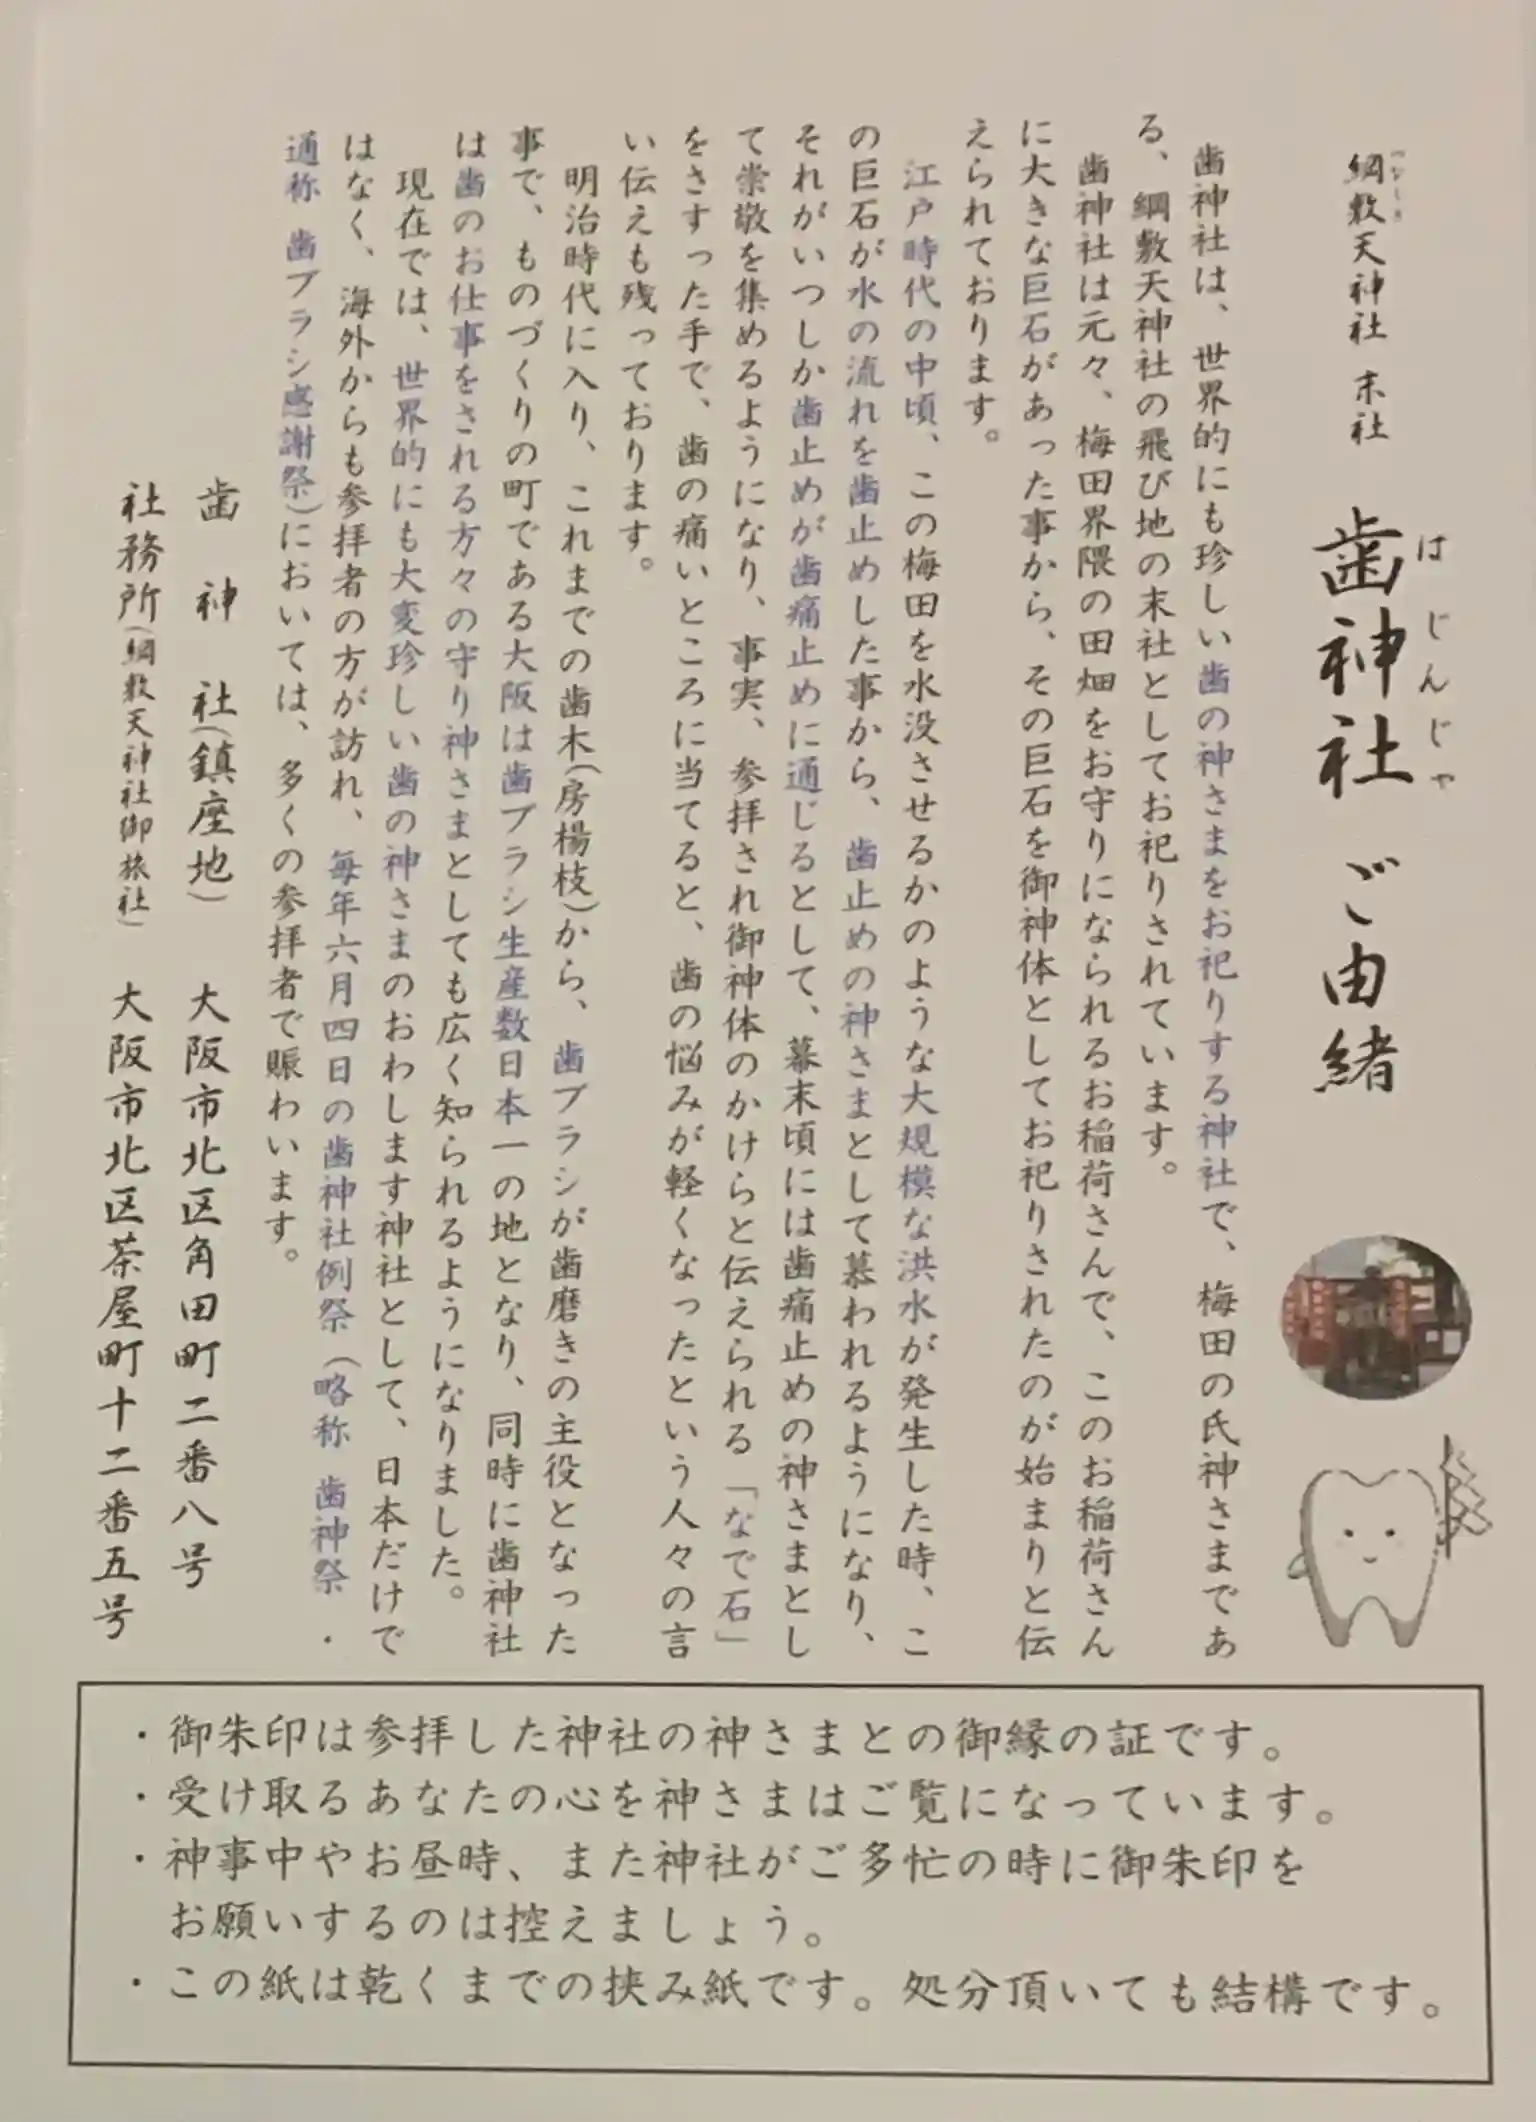 綱敷天神社 末社 歯神社 ご由緒
つなしき
はじんじゃ
歯神社は、世界的にも珍しい歯の神さまをお祀りする神社で、梅田の氏神さまであ
る、綱敷天神社の飛び地の末社としてお祀りされています。
歯神社は元々、梅田界隈の田畑をお守りになられるお稲荷さんで、このお稲荷さん
に大きな巨石があった事から、その巨石を御神体としてお祀りされたのが始まりと伝
えられております。
江戸時代の中頃、この梅田を水没させるかのような大規模な洪水が発生した時、こ
の巨石が水の流れを歯止めした事から、歯止めの神さまとして慕われるようになり、
それがいつしか歯止めが歯痛止めに通じるとして、幕末頃には歯痛止めの神さまとし
て崇敬を集めるようになり、事実、参拝され御神体のかけらと伝えられる「なで石」
をさすった手で、歯の痛いところに当てると、歯の悩みが軽くなったという人々の言
い伝えも残っております。
明治時代に入り、これまでの歯木(房楊枝)から、歯ブラシが歯磨きの主役となった
事で、ものづくりの町である大阪は歯ブラシ生産数日本一の地となり、同時に歯神社
は歯のお仕事をされる方々の守り神さまとしても広く知られるようになりました。
現在では、世界的にも大変珍しい歯の神さまのおわします神社として、日本だけで
はなく、海外からも参拝者の方が訪れ、毎年六月四日の歯神社例祭(略称 歯神祭・
通称 歯ブラシ感謝祭)においては、多くの参拝者で賑わいます。
歯神社(鎮座地) 大阪市北区角田町二番八号
社務所(綱敷天神社御旅社) 大阪市北区茶屋町十二番五号
・御朱印は参拝した神社の神さまとの御縁の証です。
・受け取るあなたの心を神さまはご覧になっています。
・神事中やお昼時、また神社がご多忙の時に御朱印を
お願いするのは控えましょう。
・この紙は乾くまでの挟み紙です。処分頂いても結構です。